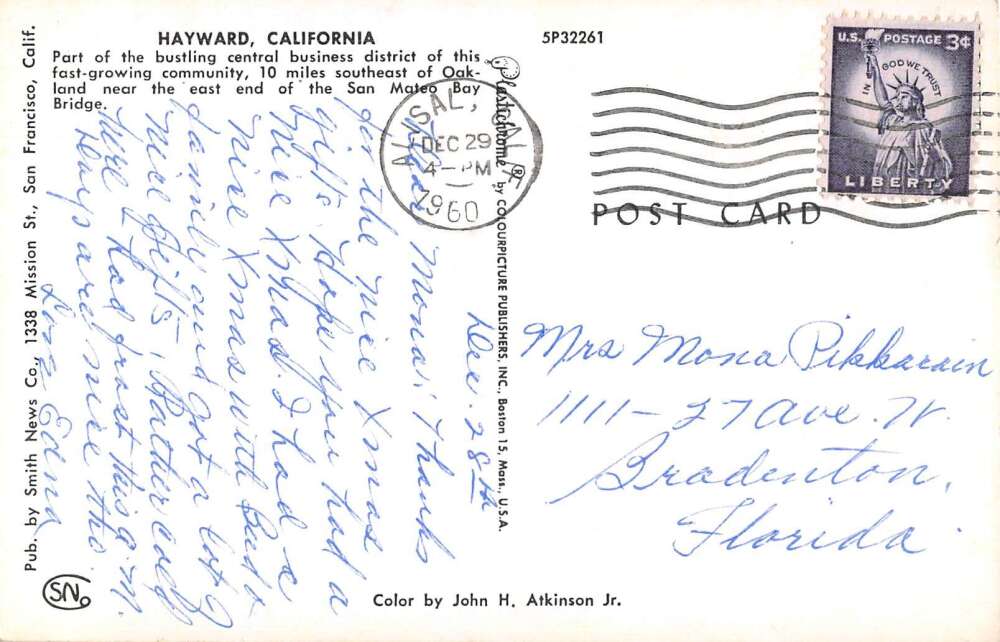 HAYWARD, CALIFORNIA
Part of the bustling central business district of this
fast-growing community, 10 miles southeast of Oak-
land near the east end of the San Mateo Bay
Bridge.
5P32261
U.S. POSTAGE 3¢
IN GOD WE TRUST
LIBERTY
DEC 29
4-PM
1960
POST CARD
Pub. by Smith News Co., 1338 Mission St., San Francisco, Calif.
Plastichrome® by COLOURPICTURE PUBLISHERS, INC., Boston 15, Mass., U.S.A.
Dec. 28th
Dear Mona: Thanks
for the nice Xmas
gifts. Hope you had a
nice Xmas. I had a
nice Xmas with Bud &
family and got a lot of
nice gifts, Rather cold
here & had frost this a.m.
Days are nice tho
Love Edna
Mrs Mona Pikkarain
1111-27 Ave. W.
Bradenton,
Florida.
SN Co
Color by John H. Atkinson Jr.